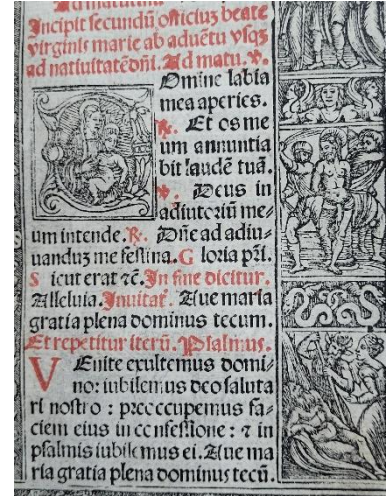 Ad matutinū
Incipit secundū officiuz beate
virginis marie ab aduētu vsqз
ad natiuitatē dn̄i. Ad matu. ℣.
Domine labia
mea aperies.
℟. Et os me
um annuntia
bit laudē tuā.
℣. Deus in
adiutoriū me-
um intende. ℟. Dn̄e ad adiu-
uanduz me festina. G loria pr̄i.
S icut erat ⁊c̄. In fine dicitur.
Alleluia. Inuitaẗ. Aue maria
gratia plena dominus tecum.
Et repetitur iterū. Psalmus.
VEnite exultemus domi-
no: iubilemus deo saluta
ri nostro : preoccupemus fa-
ciem eius in confessione : ⁊ in
psalmis iubilemus ei. Aue ma
ria gratia plena dominus tecū.